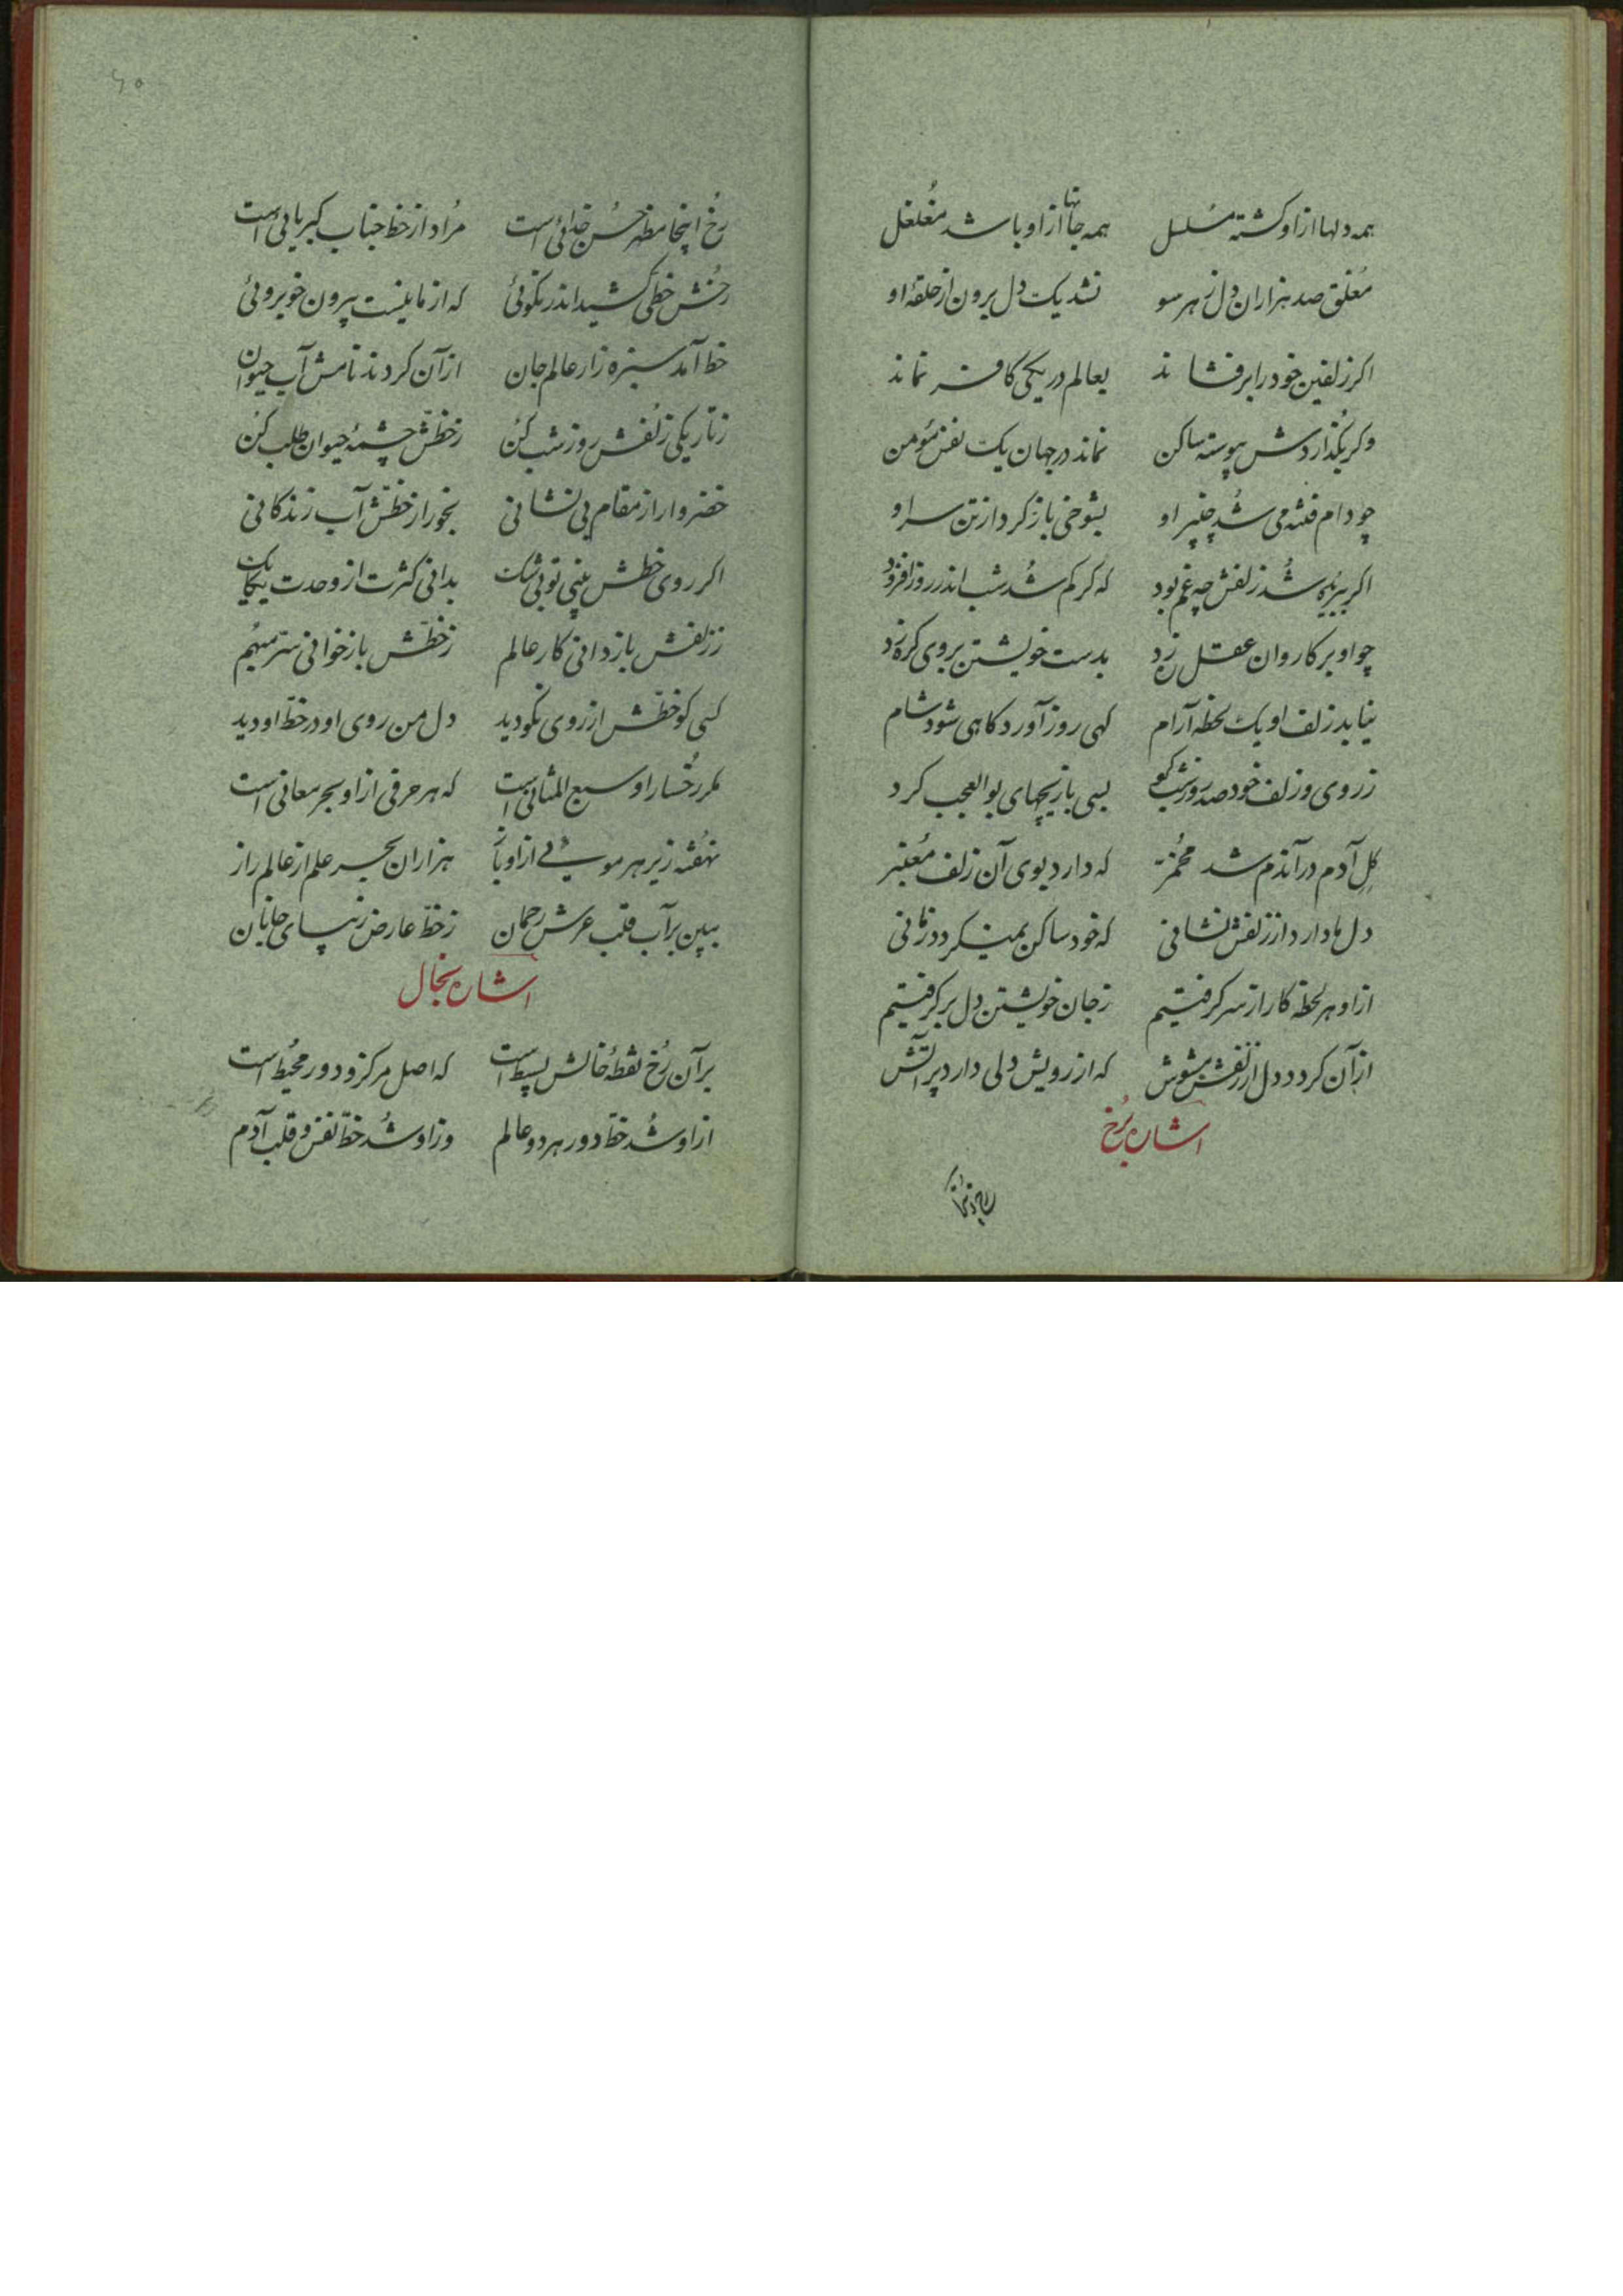 همه دلها از او گشته مسلسل همه جانها از او باشد مغلغل
معلق صد هزاران دل ز هر سو نشد یک دل برون از حلقهٔ او
اکر زلفین خود را برفشاند بعالم در یکی کافر نماند
وکر بگذاردش پیوسته ساکن نماند در جهان یک نفس مؤمن
چو دام فتنه می شد چنبر او بشوخی باز کرد از تن سر او
اکر ببریده شد زلفش چه غم بود که کر کم شد شب اندر روز افزود
چو او بر کاروان عقل ره زد بدست خویشتن بر وی کره زد
نیابد زلف او یک لحظه آرام کهی روز آورد کاهی شود شام
ز روی و زلف خود صد روز و شب کرد بسی بازیچهای بوالعجب کرد
گِل آدم در آندم شد مخمّر که دارد بوی آن زلف مُعنبر
دل ما دارد از زلفش نشانی که خود ساکن نمیکردد زمانی
از او هر لحظه کار از سر کرفتیم ز جان خویشتن دل بر کرفتیم
از آن کردد دل از زلفش مشوش که از رویش دلی دارد پر آتش
اشاره برُخ
رُخ اینجا مظهر حُسن خدائی است مُراد از خط جناب کبریائی است
رخش خطی کشید اندر نکوئی که از ما نیست بیرون خوبروئی
خط آمد سبزه زار عالم جان از آن کردند نامش آب حیوان
ز تاریکی زُلفش روز شب کن ز خطّش چشمهٔ حیوان طلب کُن
خضروار از مقام بی نشانی بخور از خطّش آب زندکانی
اکر روی خطش بینی تو بی شک بدانی کثرت از وحدت یکایک
ز زلفش باز دانی کار عالم ز خطّش باز خوانی سرّ مبهم
کسی کو خطّش از روی نکو دید دل من روی او در خطّ او دید
مکر رُخسار او سبع المثانی است که هر حرفی از او بحر معانی است
نهُفته زیر هر موئی از او باز هزاران بحر علم از عالم راز
ببین بر آب قلب عرش رحمان ز خطّ عارض زیبای جانان
اشاره بخال
بر آن رُخ نقطهٔ خالش بسیط است که اصل مرکز و دور محیُط است
از او شُد خطّ دور هر دو عالم وز او شُد خطّ نفس و قلب آدم